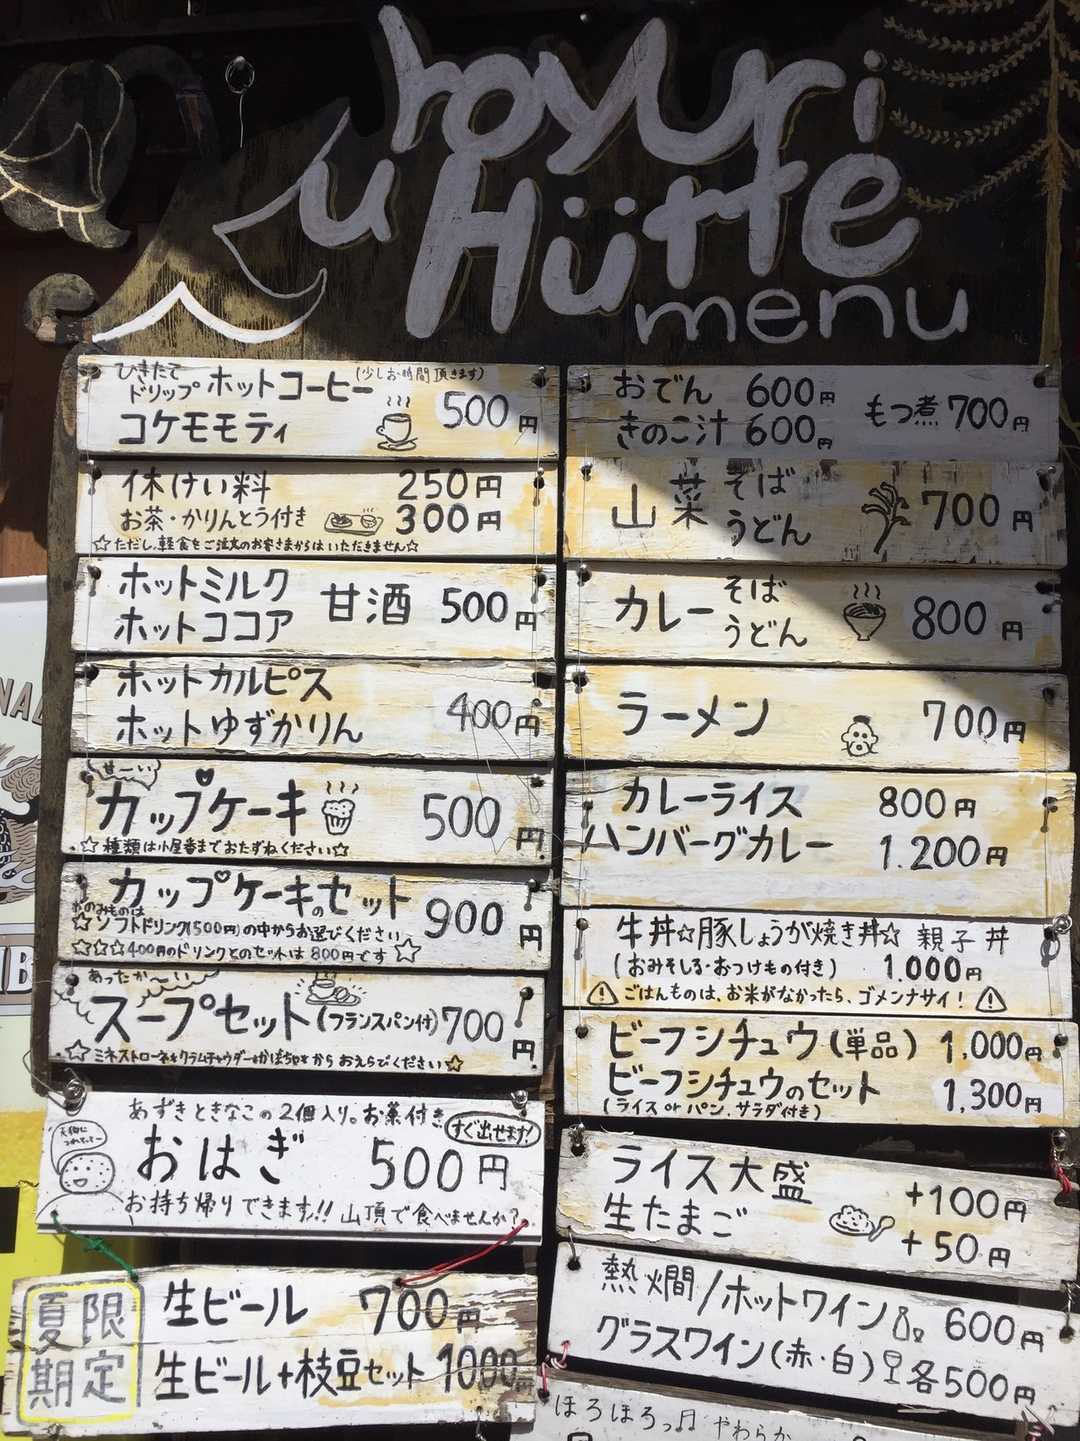 kuroyuri
Hütte
menu
ひきたて
ドリップ ホットコーヒー (少しお時間頂きます)
コケモモティ 500円
休けい料 250円
お茶・かりんとう付き 300円
☆ただし、軽食をご注文のお客さまからはいただきません☆
ホットミルク
ホットココア 甘酒 500円
ホットカルピス
ホットゆずかりん 400円
せーい
カップケーキ 500円
☆種類は小屋番までおたずねください☆
カップケーキのセット 900円
おのみものは
☆ソフトドリンク(500円)の中からお選びください
☆☆☆400円のドリンクとのセットは800円です☆
あったか〜い
スープセット(フランスパン付) 700円
☆ミネストローネorクラムチャウダーorかぼちゃorからおえらびください☆
あずきときなこの2個入り。お茶付き
すぐ出せます!
おはぎ 500円
お持ち帰りできます!! 山頂で食べませんか?
夏限
期定
生ビール 700円
生ビール+枝豆セット 1000円
おでん 600円
きのこ汁 600円
もつ煮 700円
山菜 そば
うどん 700円
カレー そば
うどん 800円
ラーメン 700円
カレーライス 800円
ハンバーグカレー 1.200円
牛丼☆豚しょうが焼き丼☆親子丼
(おみそしる・おつけもの付き) 1.000円
ごはんものは、お米がなかったら、ゴメンナサイ!
ビーフシチュウ(単品) 1,000円
ビーフシチュウのセット 1,300円
(ライス or パン、サラダ付き)
ライス大盛 +100円
生たまご +50円
熱燗/ホットワイン 600円
グラスワイン(赤・白) 各500円
ほろほろっ♬ やわらか